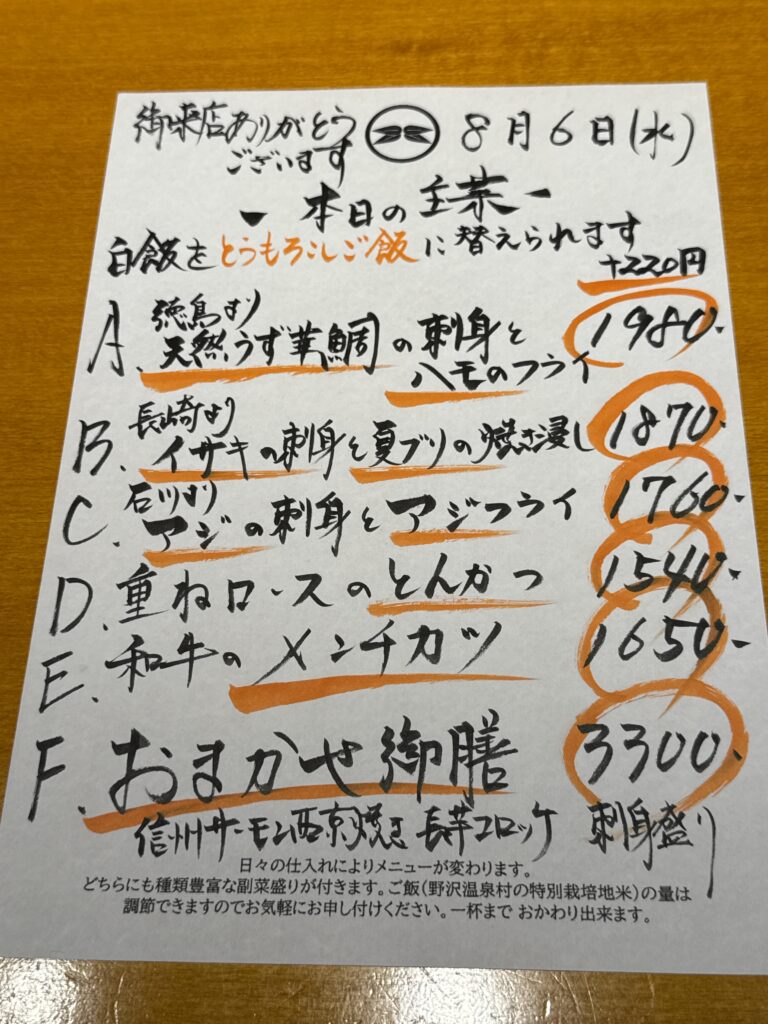 御来店ありがとう
ございます
8月6日(水)
- 本日の主菜 -
白飯をとうもろこしご飯に替えられます
+220円
A. 徳島より
天然うず華鯛の刺身と
ハモのフライ
1980.
B. 長崎より
イサキの刺身と夏ブリの焼き浸し
1870.
C. 石川より
アジの刺身とアジフライ
1760.
D. 重ねロースのとんかつ 1540.
E. 和牛のメンチカツ 1650.
F. おまかせ御膳 3300.
信州サーモン西京焼き 長芋コロッケ 刺身盛り
日々の仕入れによりメニューが変わります。
どちらにも種類豊富な副菜盛りが付きます。ご飯(野沢温泉村の特別栽培地米)の量は
調節できますのでお気軽にお申し付けください。一杯まで おかわり出来ます。